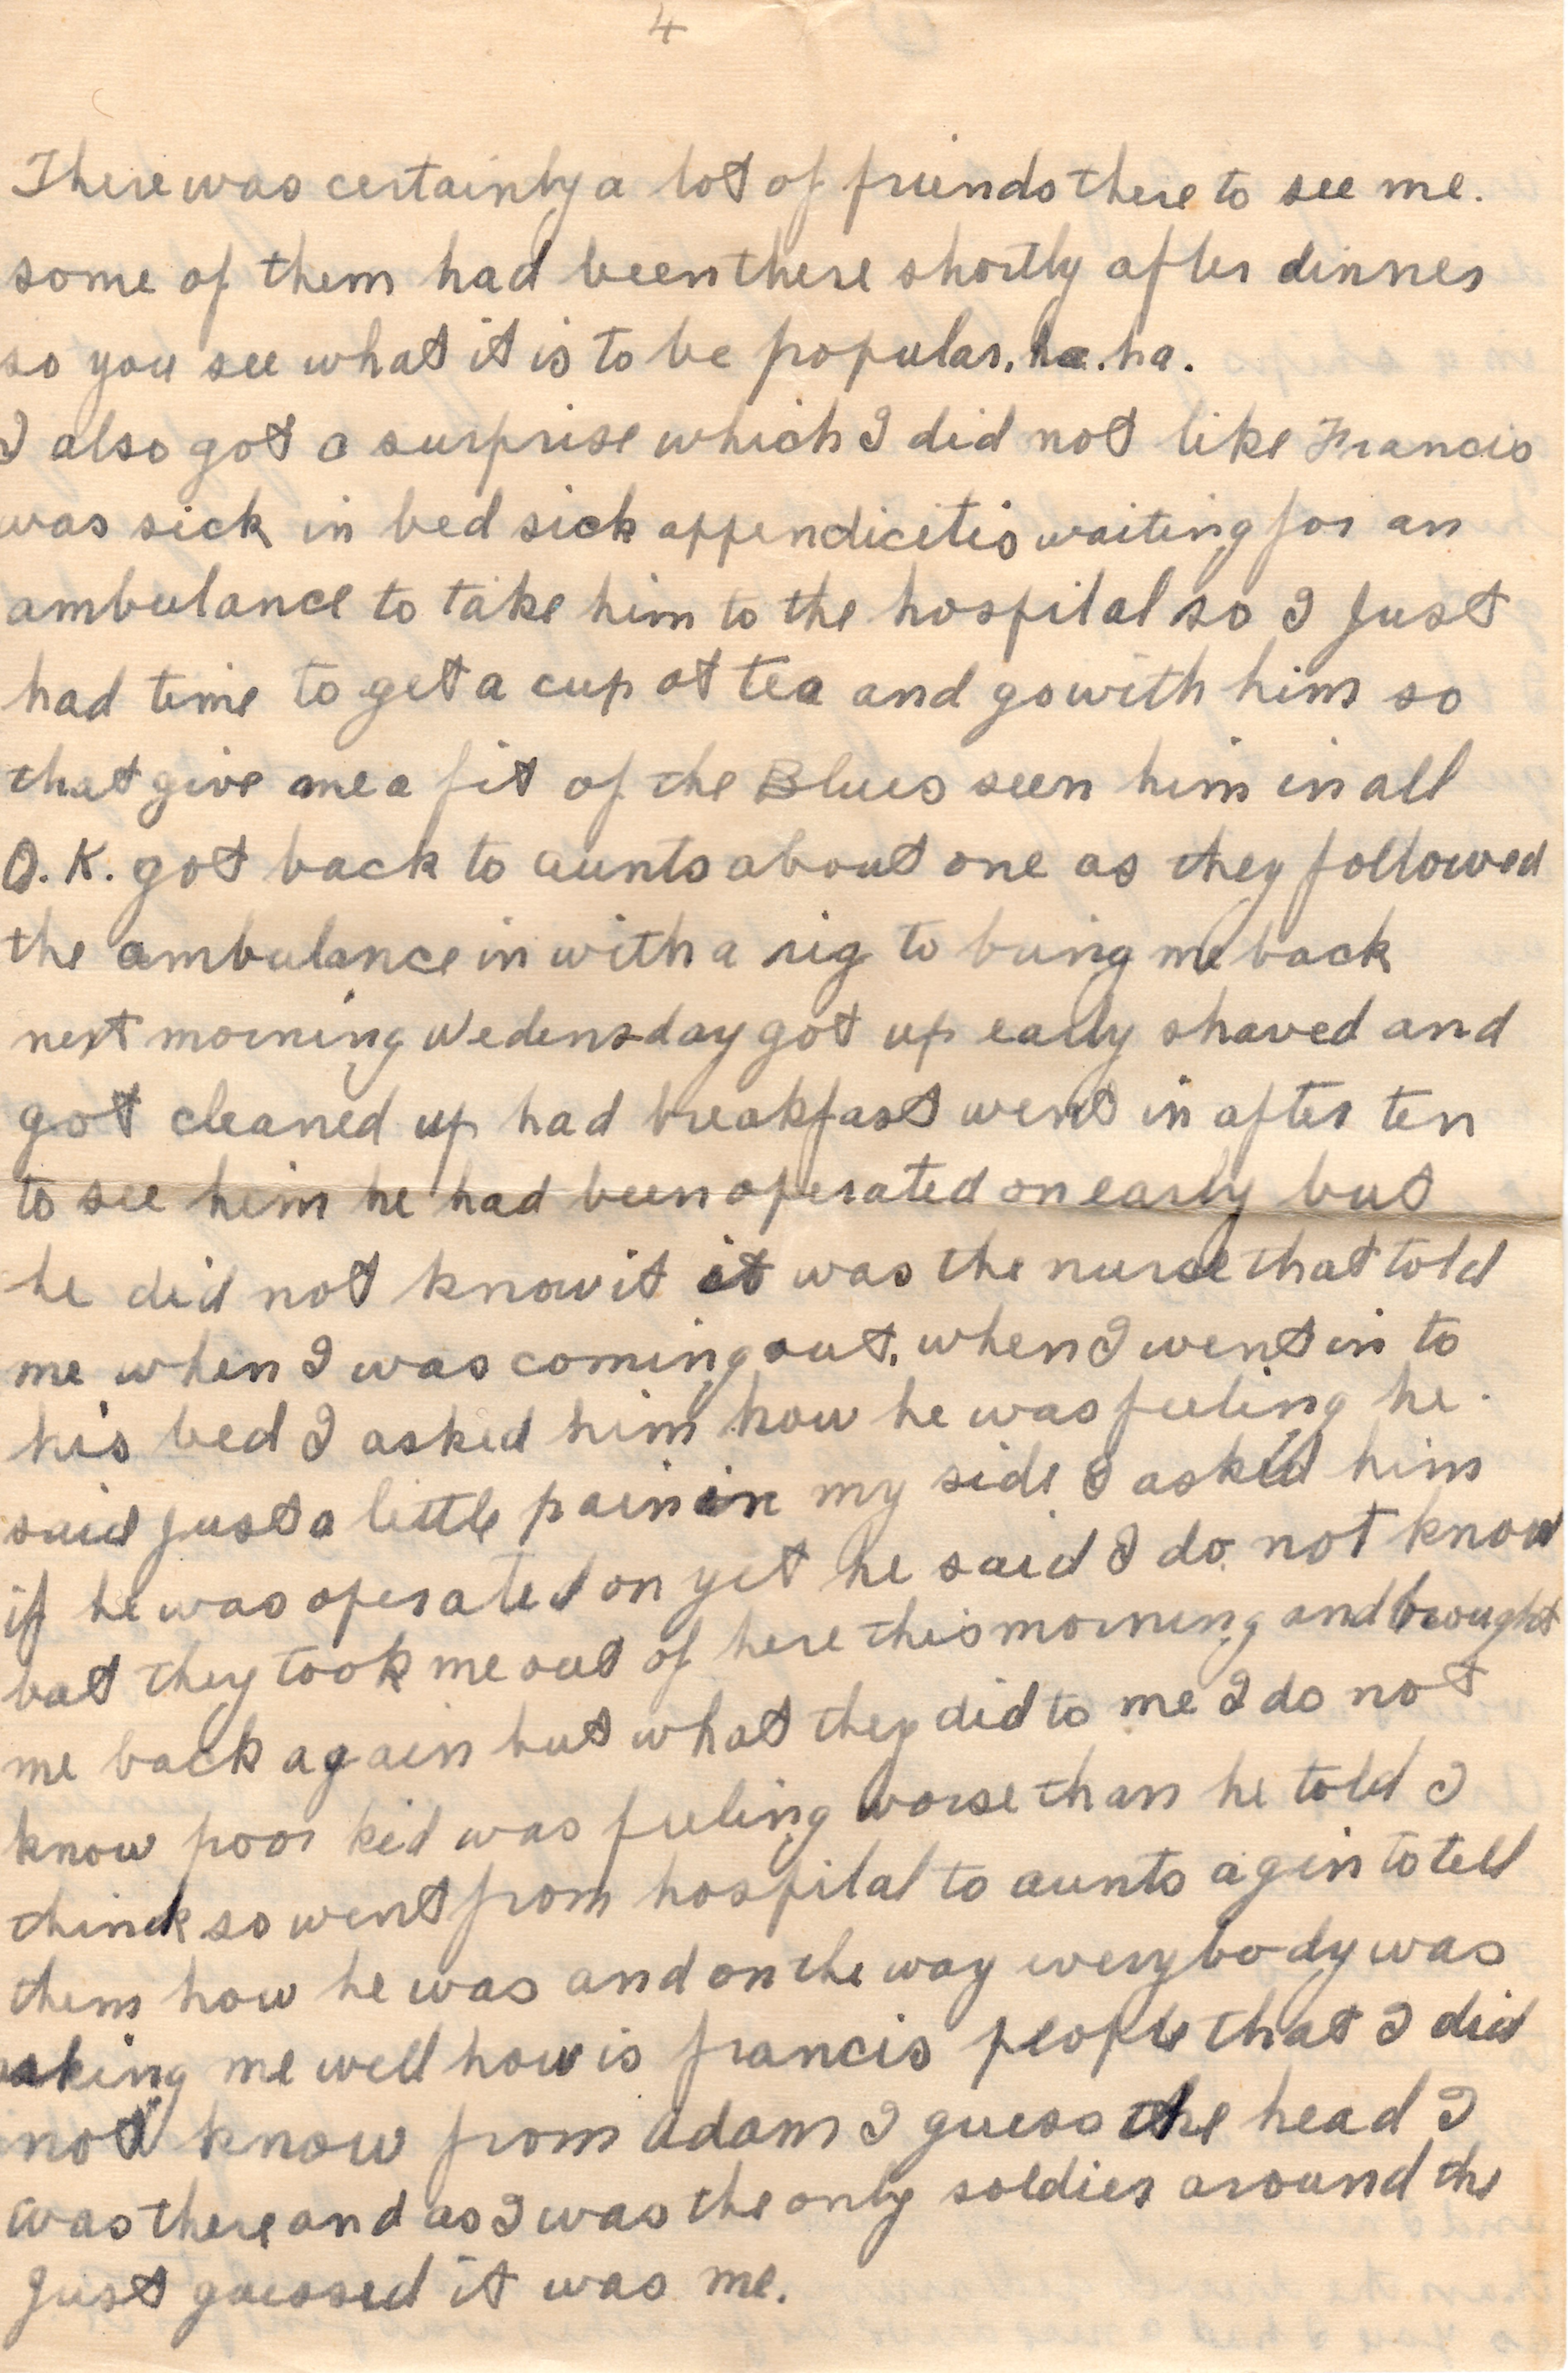 4
There was certainly a lot of friends there to see me.
some of them had been there shortly after dinner
so you see what it is to be popular. ha. ha.
I also got a surprise which I did not like Francis
was sick in bed sick appendicitis waiting for an
ambulance to take him to the hospital so I just
had time to get a cup ot tea and go with him so
that give me a fit of the Blues seen him in all
O.K. got back to aunts about one as they followed
the ambulance in with a rig to bring me back
next morning Wedensday got up early shaved and
got cleaned up had breakfast went in after ten
to see him he had been operated on early but
he did not know it it was the nurse that told
me when I was coming out. when I went in to
his bed I asked him how he was feeling he
said just a little pain in my side I asked him
if he was operated on yet he said I do not know
but they took me out of here this morning and brought
me back again but what they did to me I do not
know poor kid was feeling worse than he told I
think so went from hospital to aunts agin to tell
them how he was and on the way everybody was
asking me well how is francis people that I did
not know from adam I guess the head I
was there and as I was the only soldier around the
just guessed it was me.